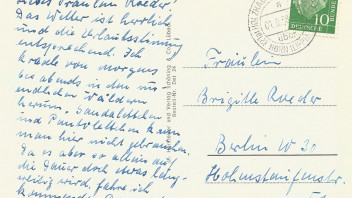 Liebes Fräulein Roeder!
Das Wetter ist herrlich
und die Urlaubsstimmung
entsprechend. Ich
krabe von morgens
bis abends in den un
endlichen Wäldern
herum. Sandaletten
und Pantoletten kann
man hier nicht gebrauchen.
Da es aber so allein auf
die Dauer doch etwas lang-
weilig wird, fahre ich
Verlag Schöning & Co., Lübeck
Bestell-Nr.
10
Fräulein
Brigitte Roeder
Berlin W 30
Hohenstaufenstr.